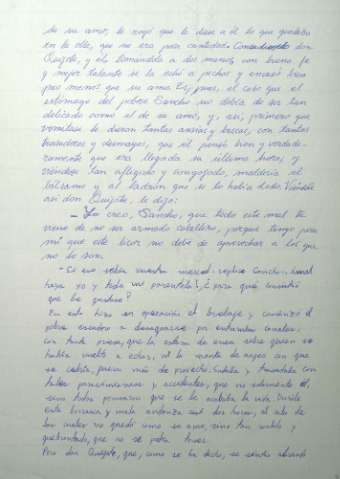 de su amo, le rogó que le diese a él lo que quedaba
en la olla, que no era poca cantidad. Concedióselo don
Quijote, y él, tomándola a dos manos, con buena fe
y mejor talante se la echó a pechos y envasó bien
poco menos que su amo. Es, pues, el caso que el
estómago del pobre Sancho no debía de ser tan
delicado como el de su amo, y, así, primero que
vomitase le dieron tantas ansias y bascas, con tantos
trasudores y desmayos, que él pensó bien y verdade-
ramente que era llegada su última hora; y
viéndose tan afligido y congojado, maldecía el
bálsamo y al ladrón que se lo había dado. Viéndole
así don Quijote, le dijo:
– Yo creo, Sancho, que todo este mal te
viene de no ser armado caballero, porque tengo para
mí que este licor no debe de aprovechar a los que
no lo son.
– Si eso sabía vuestra merced - replicó Sancho -, ¡mal
haya yo y toda mi parentela!, ¿para qué consintió
que lo gustase?
En esto hizo su operación el brebaje y comenzó el
pobre escudero a desaguarse por entrambas canales,
con tanta priesa, que la estera de enea sobre quien se
había vuelto a echar, ni la manta de anjeo con que
se cubría, fueron más de provecho. Sudaba y trasudaba con
tales parasismos y accidentes, que no solamente él,
sino todos pensaron que se le acababa la vida. Duróle
esta borrasca y mala andanza casi dos horas, al cabo de
las cuales no quedó como su amo, sino tan molido y
quebrantado, que no se podía tener.
Pero don Quijote, que, como se ha dicho, se sintió aliviado